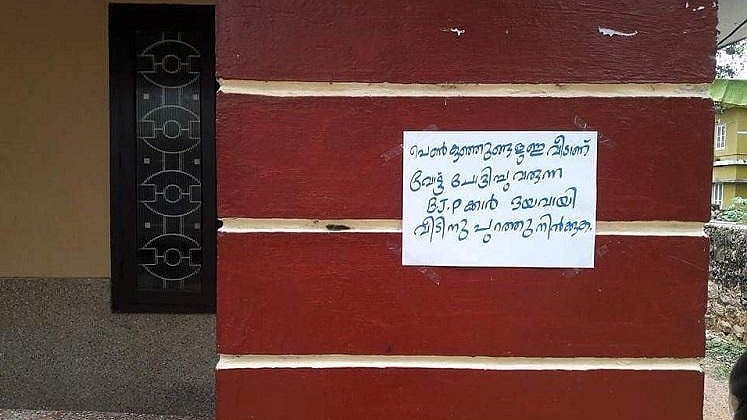 പെൺകുഞ്ഞുങ്ങളുള്ള വീടാണ്
വോട്ട് ചോദിച്ചു വരുന്ന
BJP ക്കാർ ദയവായി
വീടിനു പുറത്തു നിൽക്കുക.